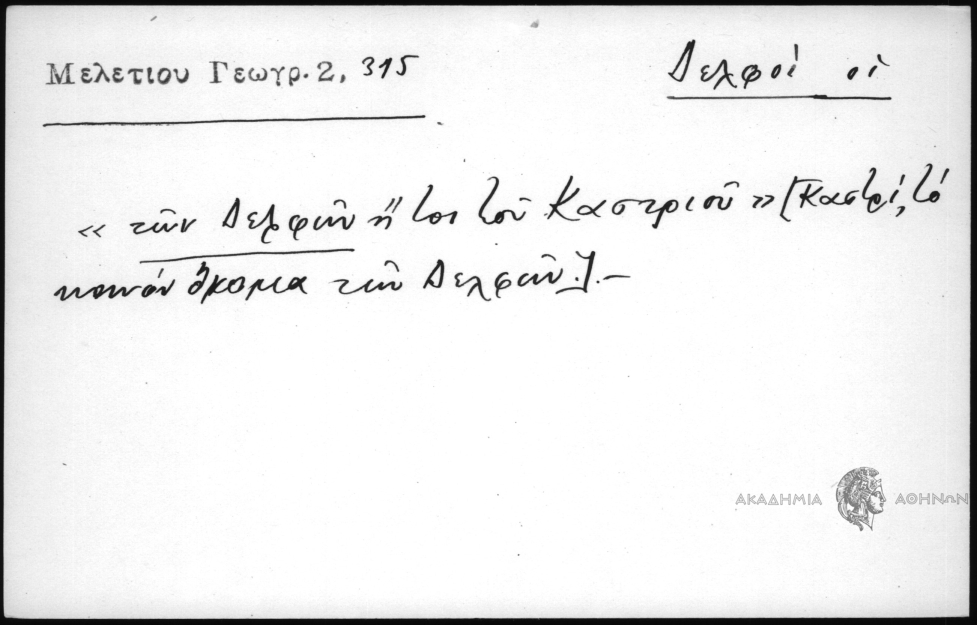 Μελετίου Γεωγρ. 2, 315
Δελφοί οἱ
« τῶν Δελφῶν ἤ τοι τοῦ Καστριοῦ » [Καστρί, τό
κοινόν ὄνομα τῶν Δελφῶν.].—
ΑΚΑΔΗΜΙΑ ΑΘΗΝΩΝ